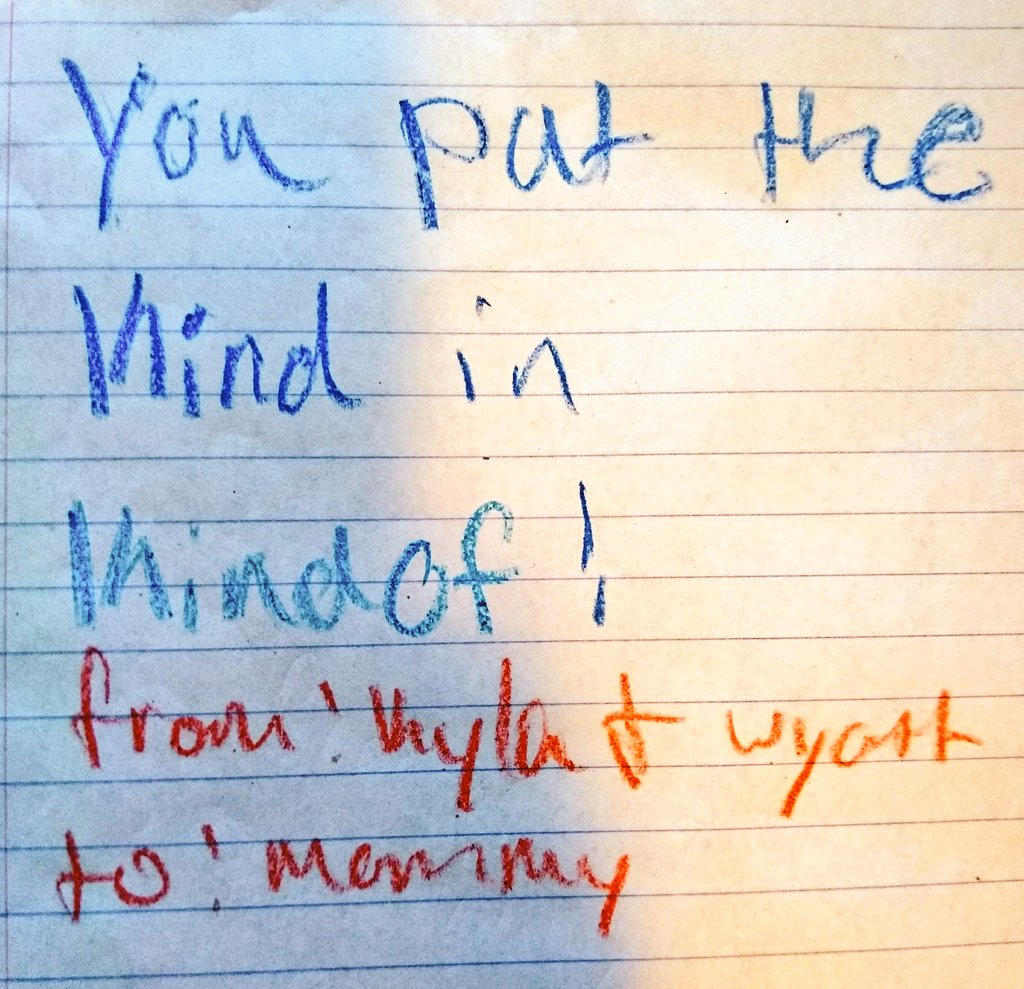 You put the
Kind in
Kindof!
from: Kyla & Wyatt
to: mommy